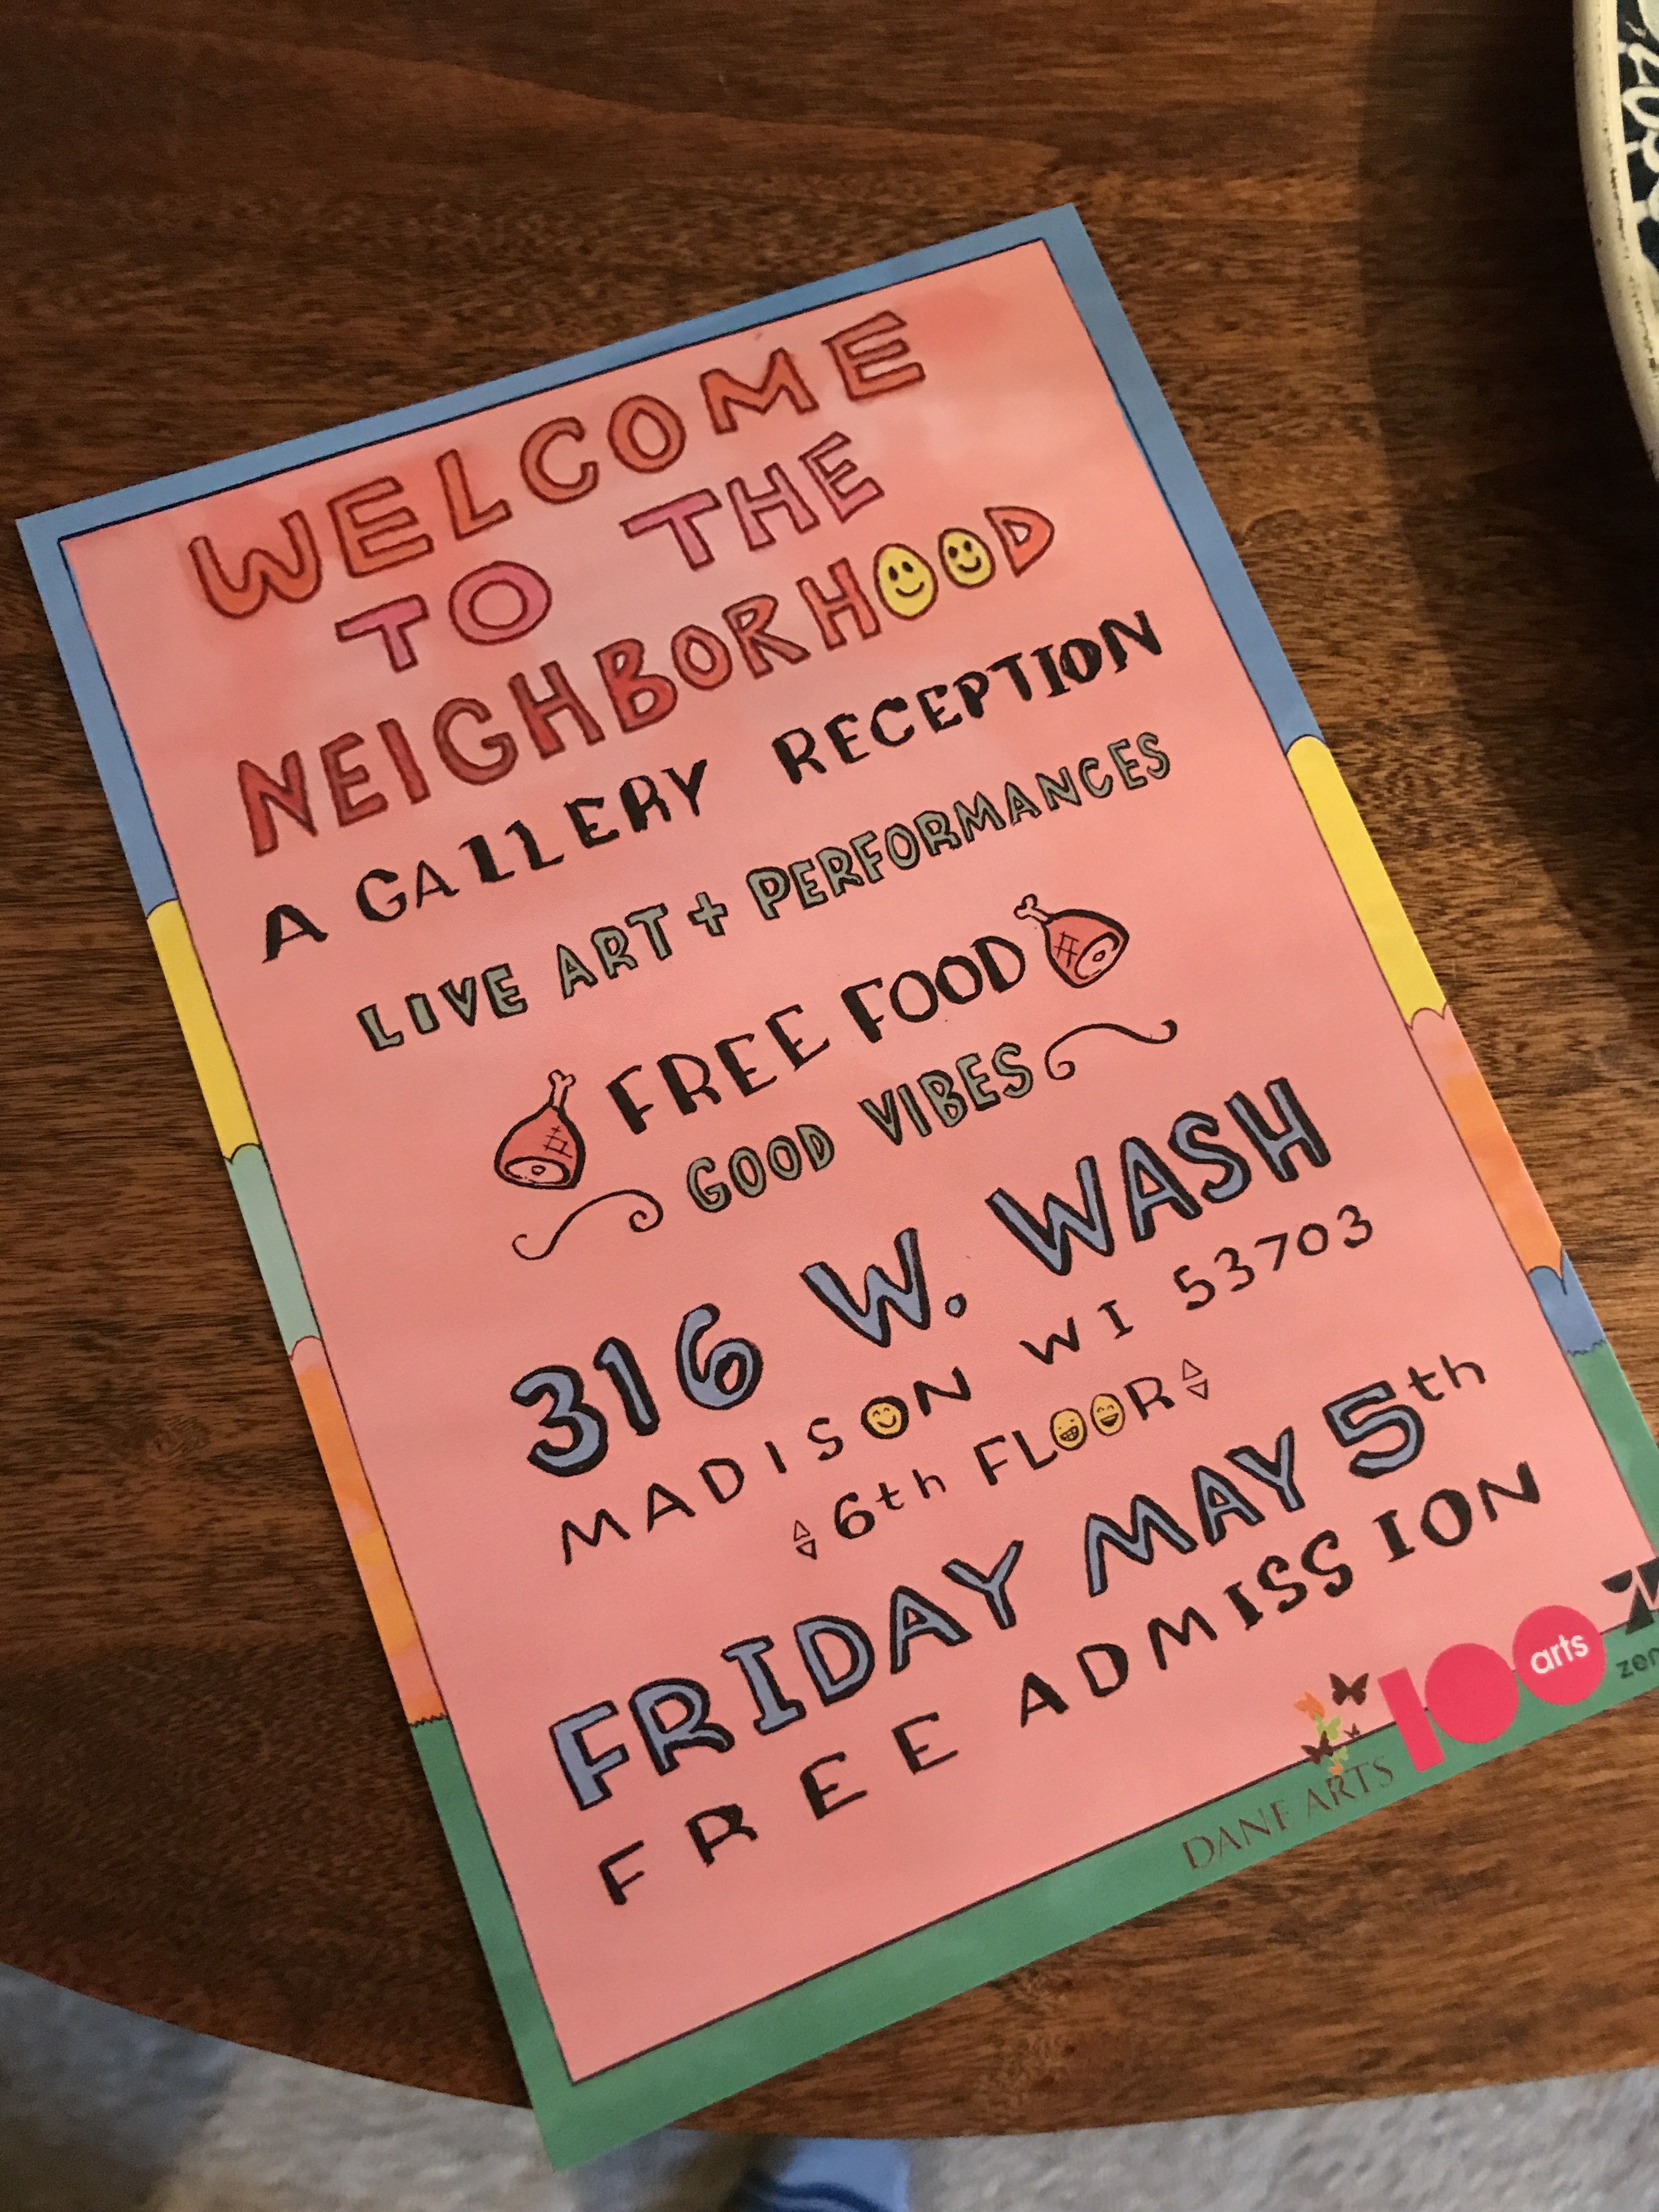 WELCOME
TO THE
NEIGHBORHOOD
A GALLERY RECEPTION
LIVE ART + PERFORMANCES
FREE FOOD
GOOD VIBES
316 W. WASH
MADISON WI 53703
6th FLOOR
FRIDAY MAY 5th
FREE ADMISSION
DANE ARTS
100 arts
zen